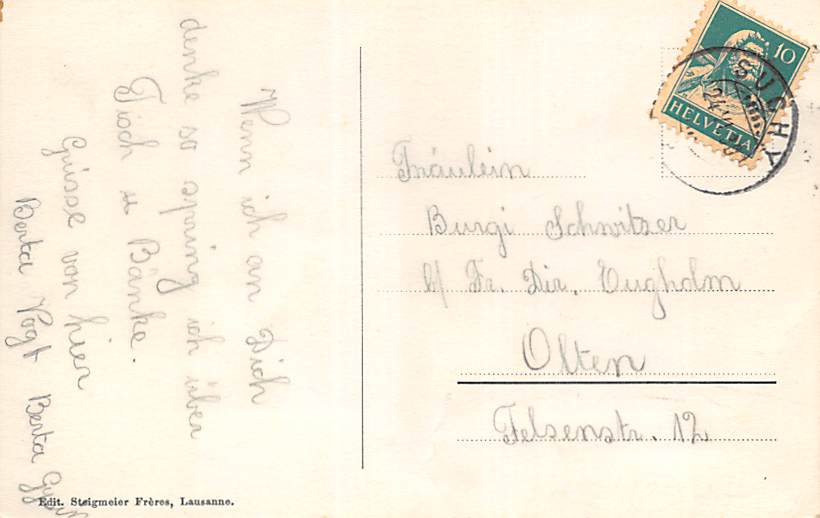 Wenn ich an Dich
denke so spring ich über
Tisch u Bänke.
Grüsse von hier
Berta Vogt Berta
Edit. Steigmeier Frères, Lausanne.
10
HELVETIA
SUCHY
Fräulein
Burgi Schwitzer
b/ Fr. Dir. Eugholm
Olten
Felsenstr. 12